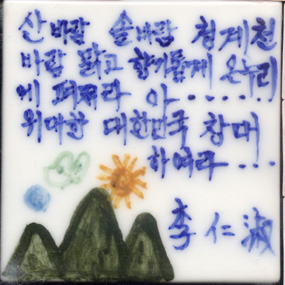 산바람 솔바람 청계천
바람 맑고 향기롭게 온누리
에 퍼져라 아......!!
위대한 대한민국 창대
하여라....
李仁淑